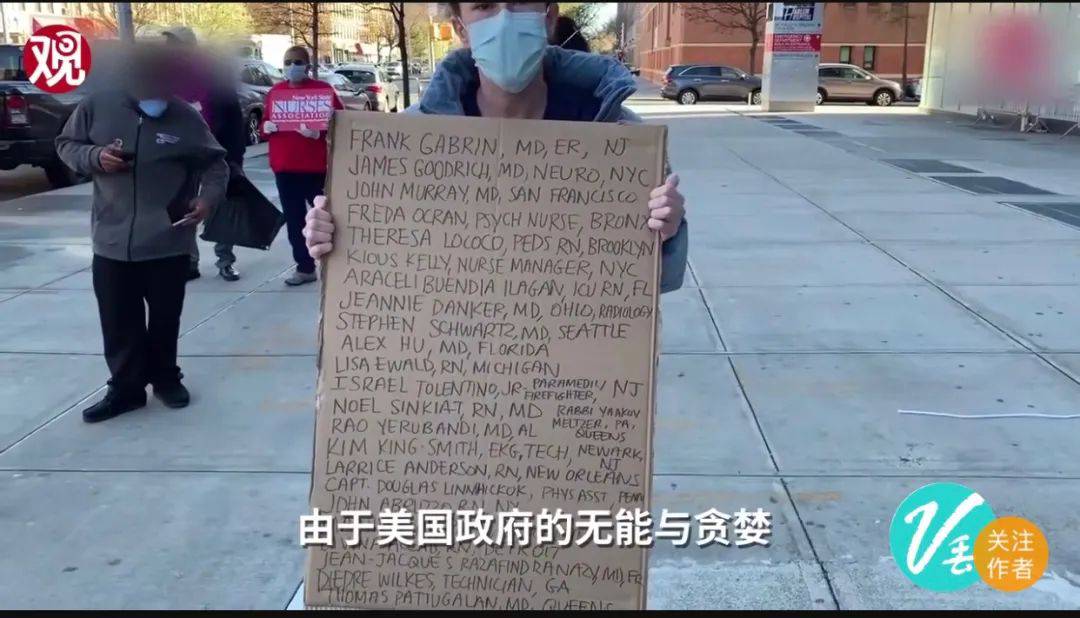 观
New York State
NURSES
ASSOCIATION
EMERGENCY
FRANK GABRIN, MD, ER, NJ
JAMES GOODRICH, MD, NEURO, NYC
JOHN MURRAY, MD, SAN FRANCISCO
FREDA OCRAN, PSYCH NURSE, BRONX
THERESA LOCOCO, PEDS RN, BROOKLYN
KIOUS KELLY, NURSE MANAGER, NYC
ARACELI BUENDIA ILAGAN, ICU RN, FL
JEANNIE DANKER, MD, OHIO, RADIOLOGY
STEPHEN SCHWARTZ, MD, SEATTLE
ALEX HU, MD, FLORIDA
LISA EWALD, RN, MICHIGAN
ISRAEL TOLENTINO, JR. PARAMEDIC/ NJ
FIREFIGHTER,
NOEL SINKIAT, RN, MD
RABBI YAAKOV
MELTZER, PA,
QUEENS
RAO YERUBANDI, MD, AL
KIM KING-SMITH, EKG, TECH, NEWARK,
NJ
LARRICE ANDERSON, RN, NEW ORLEANS
CAPT. DOUGLAS LINN HICKOK, PHYS ASST, PENN
JOHN
由于美国政府的无能与贪婪
RN, DETROIT
JEAN-JACQUES RAZAFINDRANAZY, MD, FR
DIEDRE WILKES, TECHNICIAN, GA
THOMAS PATTUGALAN, MD, QUEENS
V丢
关注
作者